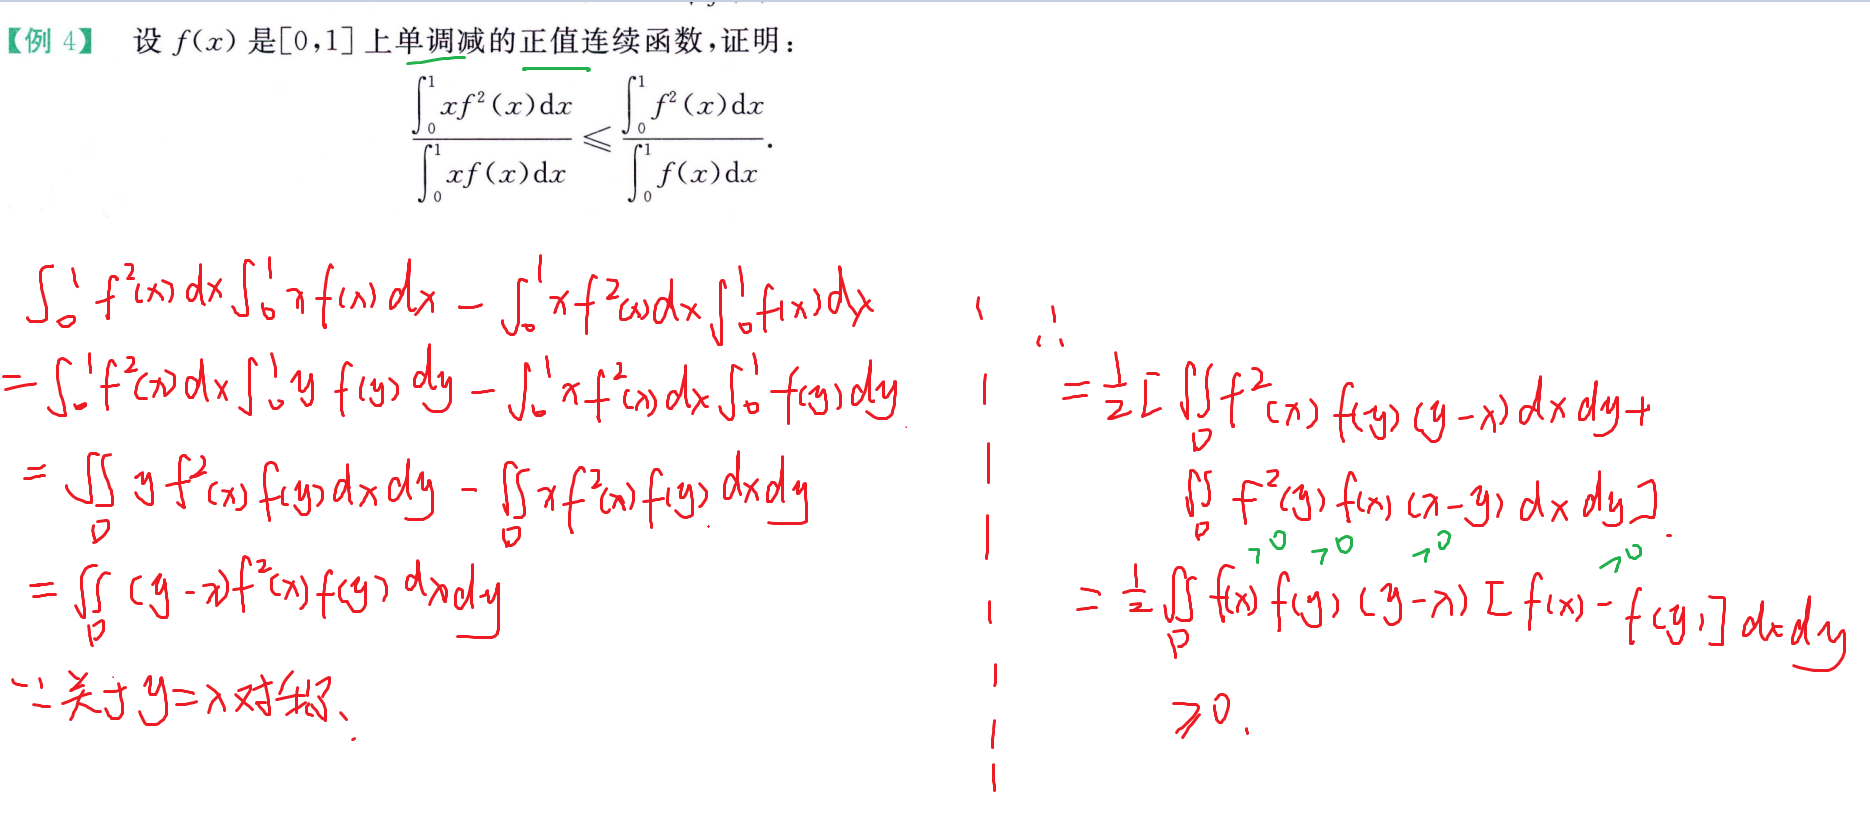 【例 4】 设 f(x) 是[0,1] 上单调减的正值连续函数,证明:
\frac{\int_0^1 xf²(x)dx}{\int_0^1 xf(x)dx} ≤ \frac{\int_0^1 f²(x)dx}{\int_0^1 f(x)dx}.
∫₀¹ f²(x)dx ∫₀¹ xf(x)dx − ∫₀¹ xf²(x)dx ∫₀¹ f(x)dx
= ∫₀¹ f²(x)dx ∫₀¹ y f(y)dy − ∫₀¹ xf²(x)dx ∫₀¹ f(y)dy
= ∬_D y f²(x)f(y)dxdy − ∬_D xf²(x)f(y)dxdy
= ∬_D (y−x)f²(x)f(y)dxdy
∵ 关于 y=x 对称、
∴
= ½[∬_D f²(x)f(y)(y−x)dxdy+
∬_D f²(y)f(x)(x−y)dxdy].
>0 >0 >0 >0
= ½∬_D f(x)f(y)(y−x)[f(x)−f(y)]dxdy
≥0.